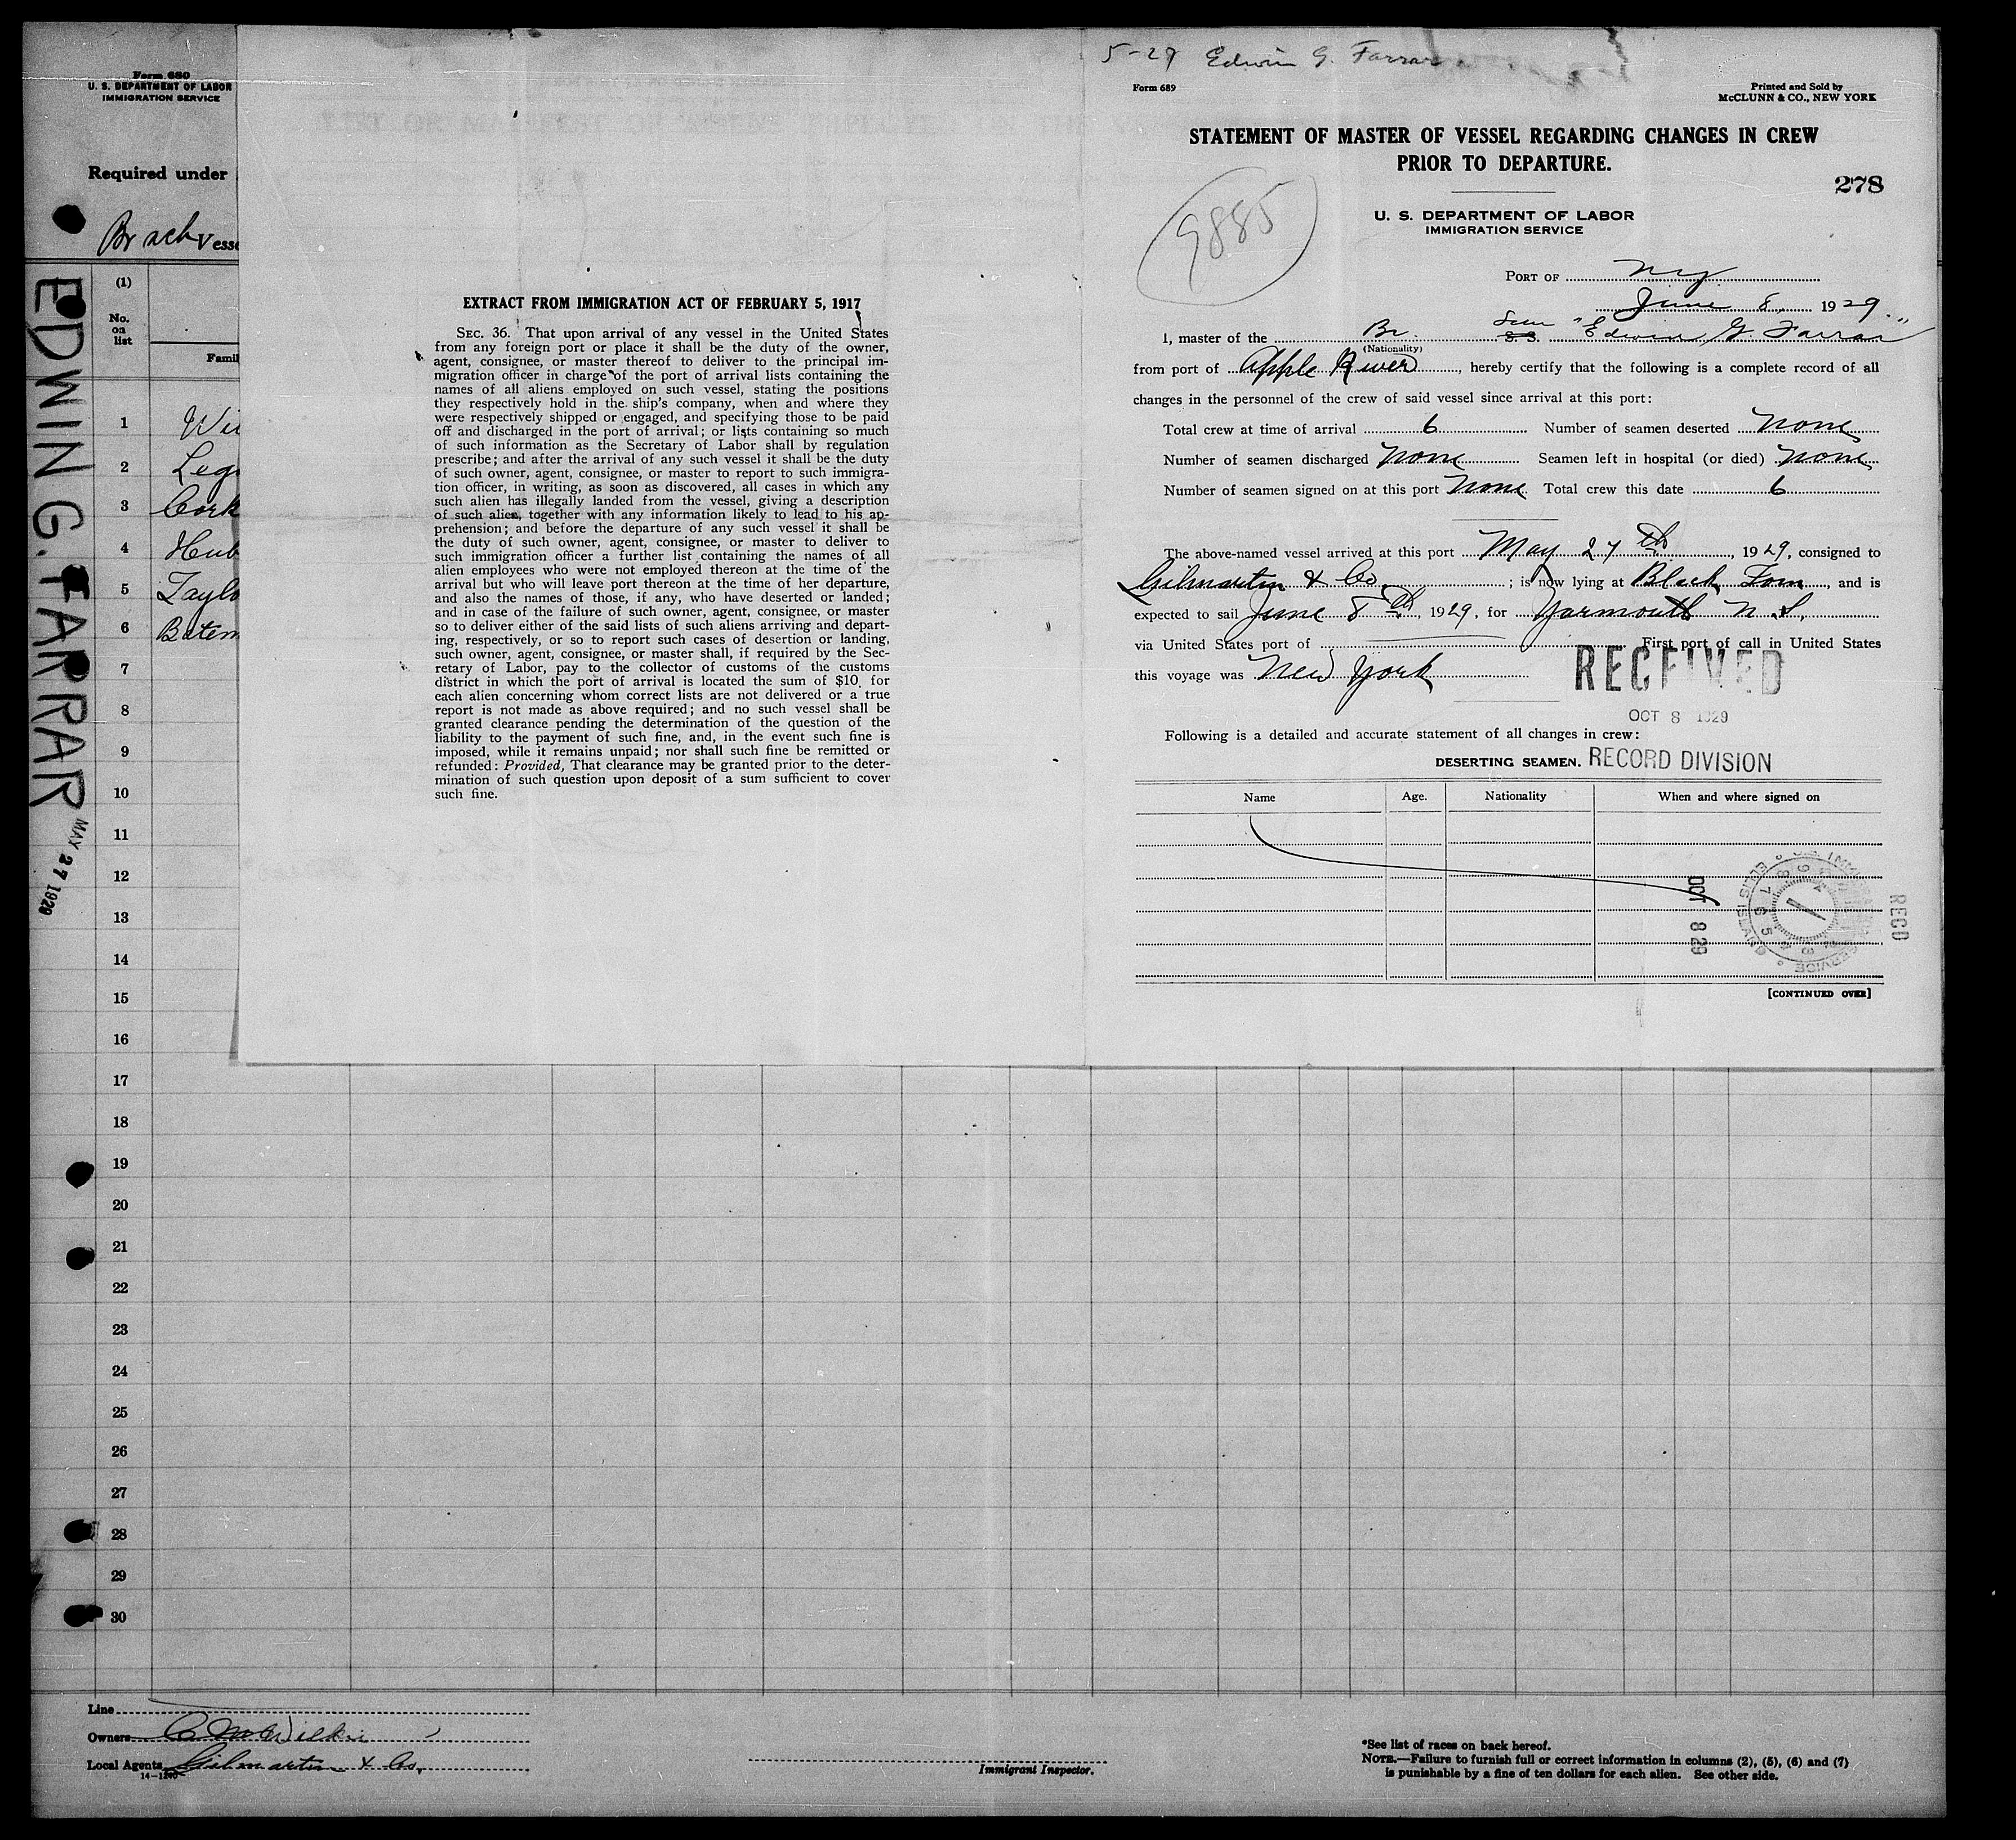 Form 680
U. S. DEPARTMENT OF LABOR
IMMIGRATION SERVICE
Required under
Br sch Vesse
(1)
No.
on
list
Famil
1 Wil
2 Leg
3 Cork
4 Hub
5 Taylo
6 Batem
7
8
9
10
11
12
13
14
15
16
17
18
19
20
21
22
23
24
25
26
27
28
29
30
EDWIN G. FARRAR
MAY 27 1929
Line
Owners
Local Agents Gilmartin & Co.
14-1240
Immigrant Inspector.
*See list of races on back hereof.
NOTE.—Failure to furnish full or correct information in columns (2), (5), (6) and (7)
is punishable by a fine of ten dollars for each alien. See other side.
EXTRACT FROM IMMIGRATION ACT OF FEBRUARY 5, 1917
SEC. 36. That upon arrival of any vessel in the United States
from any foreign port or place it shall be the duty of the owner,
agent, consignee, or master thereof to deliver to the principal im-
migration officer in charge of the port of arrival lists containing the
names of all aliens employed on such vessel, stating the positions
they respectively hold in the ship's company, when and where they
were respectively shipped or engaged, and specifying those to be paid
off and discharged in the port of arrival; or lists containing so much
of such information as the Secretary of Labor shall by regulation
prescribe; and after the arrival of any such vessel it shall be the duty
of such owner, agent, consignee, or master to report to such immigra-
tion officer, in writing, as soon as discovered, all cases in which any
such alien has illegally landed from the vessel, giving a description
of such alien, together with any information likely to lead to his ap-
prehension; and before the departure of any such vessel it shall be
the duty of such owner, agent, consignee, or master to deliver to
such immigration officer a further list containing the names of all
alien employees who were not employed thereon at the time of the
arrival but who will leave port thereon at the time of her departure,
and also the names of those, if any, who have deserted or landed;
and in case of the failure of such owner, agent, consignee, or master
so to deliver either of the said lists of such aliens arriving and depart-
ing, respectively, or so to report such cases of desertion or landing,
such owner, agent, consignee, or master shall, if required by the Sec-
retary of Labor, pay to the collector of customs of the customs
district in which the port of arrival is located the sum of $10 for
each alien concerning whom correct lists are not delivered or a true
report is not made as above required; and no such vessel shall be
granted clearance pending the determination of the question of the
liability to the payment of such fine, and, in the event such fine is
imposed, while it remains unpaid; nor shall such fine be remitted or
refunded: Provided, That clearance may be granted prior to the deter-
mination of such question upon deposit of a sum sufficient to cover
such fine.
5-27 Edwin G. Farrar
Form 689
Printed and Sold by
McCLUNN & CO., NEW YORK
STATEMENT OF MASTER OF VESSEL REGARDING CHANGES IN CREW
PRIOR TO DEPARTURE.
278
9885
U. S. DEPARTMENT OF LABOR
IMMIGRATION SERVICE
PORT OF NY
June 8, 1929.
I, master of the Br. SS "Edwin G. Farrar"
(Nationality)
from port of Apple River, hereby certify that the following is a complete record of all
changes in the personnel of the crew of said vessel since arrival at this port:
Total crew at time of arrival 6 Number of seamen deserted None
Number of seamen discharged None Seamen left in hospital (or died) None
Number of seamen signed on at this port None Total crew this date 6
The above-named vessel arrived at this port May 27th, 1929, consigned to
Gilmartin & Co. ; is now lying at Black Tom, and is
expected to sail June 8th, 1929, for Yarmouth N.S.
via United States port of First port of call in United States
this voyage was New York
RECEIVED
OCT 8 1929
Following is a detailed and accurate statement of all changes in crew:
DESERTING SEAMEN. RECORD DIVISION
Name Age. Nationality When and where signed on
OCT 8 29
RECD
ELLIS ISLAND
[CONTINUED OVER]